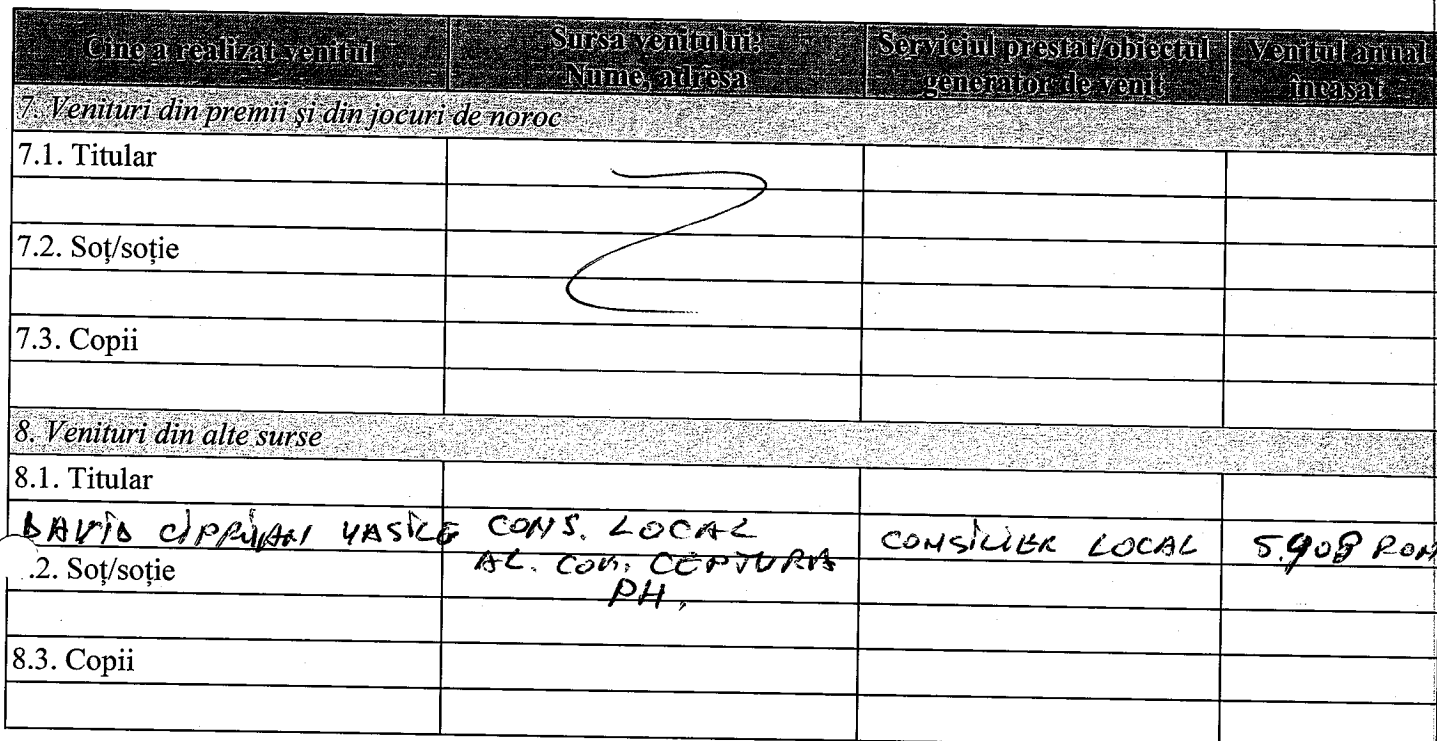 Cine a realizat venitul
Sursa venitului:
Nume, adresa
Serviciul prestat/obiectul
generator de venit
Venitul anual
încasat
7. Venituri din premii și din jocuri de noroc
7.1. Titular
7.2. Soț/soție
7.3. Copii
8. Venituri din alte surse
8.1. Titular
DAVID CIPRIAN VASILE CONS. LOCAL CONSILIER LOCAL 5.908 RON
AL. COM. CEPTURA
.2. Soț/soție
PH.
8.3. Copii